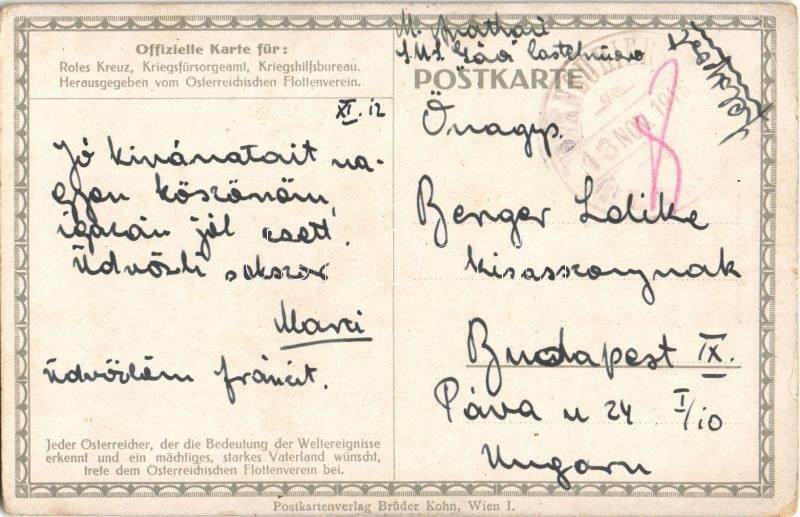 Offizielle Karte für:
Rotes Kreuz, Kriegsfürsorgeamt, Kriegshilfsbureau.
Herausgegeben vom Österreichischen Flottenverein.
XI. 12
Jó kivánatait na-
gyon köszönöm,
igazán jól esett.
Üdvözli sokszor
Marci
Üdvözlöm fráncit.
Jeder Österreicher, der die Bedeutung der Weltereignisse
erkennt und ein mächtiges, starkes Vaterland wünscht,
trete dem Österreichischen Flottenverein bei.
M.
S.M.S. Gäa Castelnuovo
POSTKARTE
13 NOV. 191
Önagys.
Berger Lolike
kisasszonynak
Budapest IX.
Páva u 24 I/10
Ungarn
Postkartenverlag Brüder Kohn, Wien I.